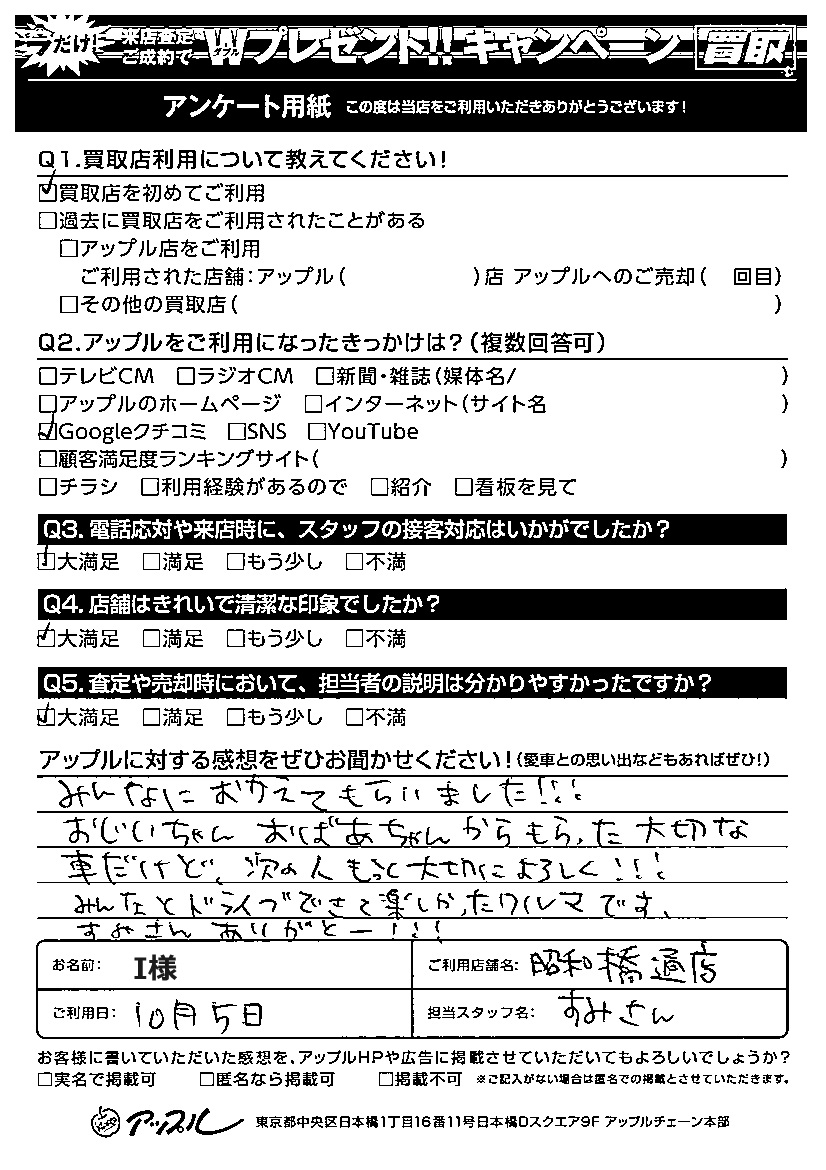 だけ! 来店査定・ご成約で Wダブルプレゼント!! キャンペーン 買取
アンケート用紙 この度は当店をご利用いただきありがとうございます!
Q1.買取店利用について教えてください!
☑買取店を初めてご利用
□過去に買取店をご利用されたことがある
□アップル店をご利用
ご利用された店舗:アップル( )店 アップルへのご売却( 回目)
□その他の買取店( )
Q2.アップルをご利用になったきっかけは?(複数回答可)
□テレビCM □ラジオCM □新聞・雑誌(媒体名/ )
□アップルのホームページ □インターネット(サイト名 )
☑Googleクチコミ □SNS □YouTube
□顧客満足度ランキングサイト( )
□チラシ □利用経験があるので □紹介 □看板を見て
Q3.電話応対や来店時に、スタッフの接客対応はいかがでしたか?
☑大満足 □満足 □もう少し □不満
Q4.店舗はきれいで清潔な印象でしたか?
☑大満足 □満足 □もう少し □不満
Q5.査定や売却時において、担当者の説明は分かりやすかったですか?
☑大満足 □満足 □もう少し □不満
アップルに対する感想をぜひお聞かせください!(愛車との思い出などもあればぜひ!)
みんなに おかえてもらいました!!!
おじいちゃん おばあちゃんからもらった大切な
車だけど、次の人もっと大切によろしく!!!
みんなとドライブできて楽しかったクルマです、
すみさん ありがとー!!!
お名前: I様 ご利用店舗名: 昭和橋通店
ご利用日: 10月5日 担当スタッフ名: すみさん
お客様に書いていただいた感想を、アップルHPや広告に掲載させていただいてもよろしいでしょうか?
□実名で掲載可 □匿名なら掲載可 □掲載不可 ※ご記入がない場合は匿名での掲載とさせていただきます。
アップル 東京都中央区日本橋1丁目16番11号日本橋Dスクエア9F アップルチェーン本部